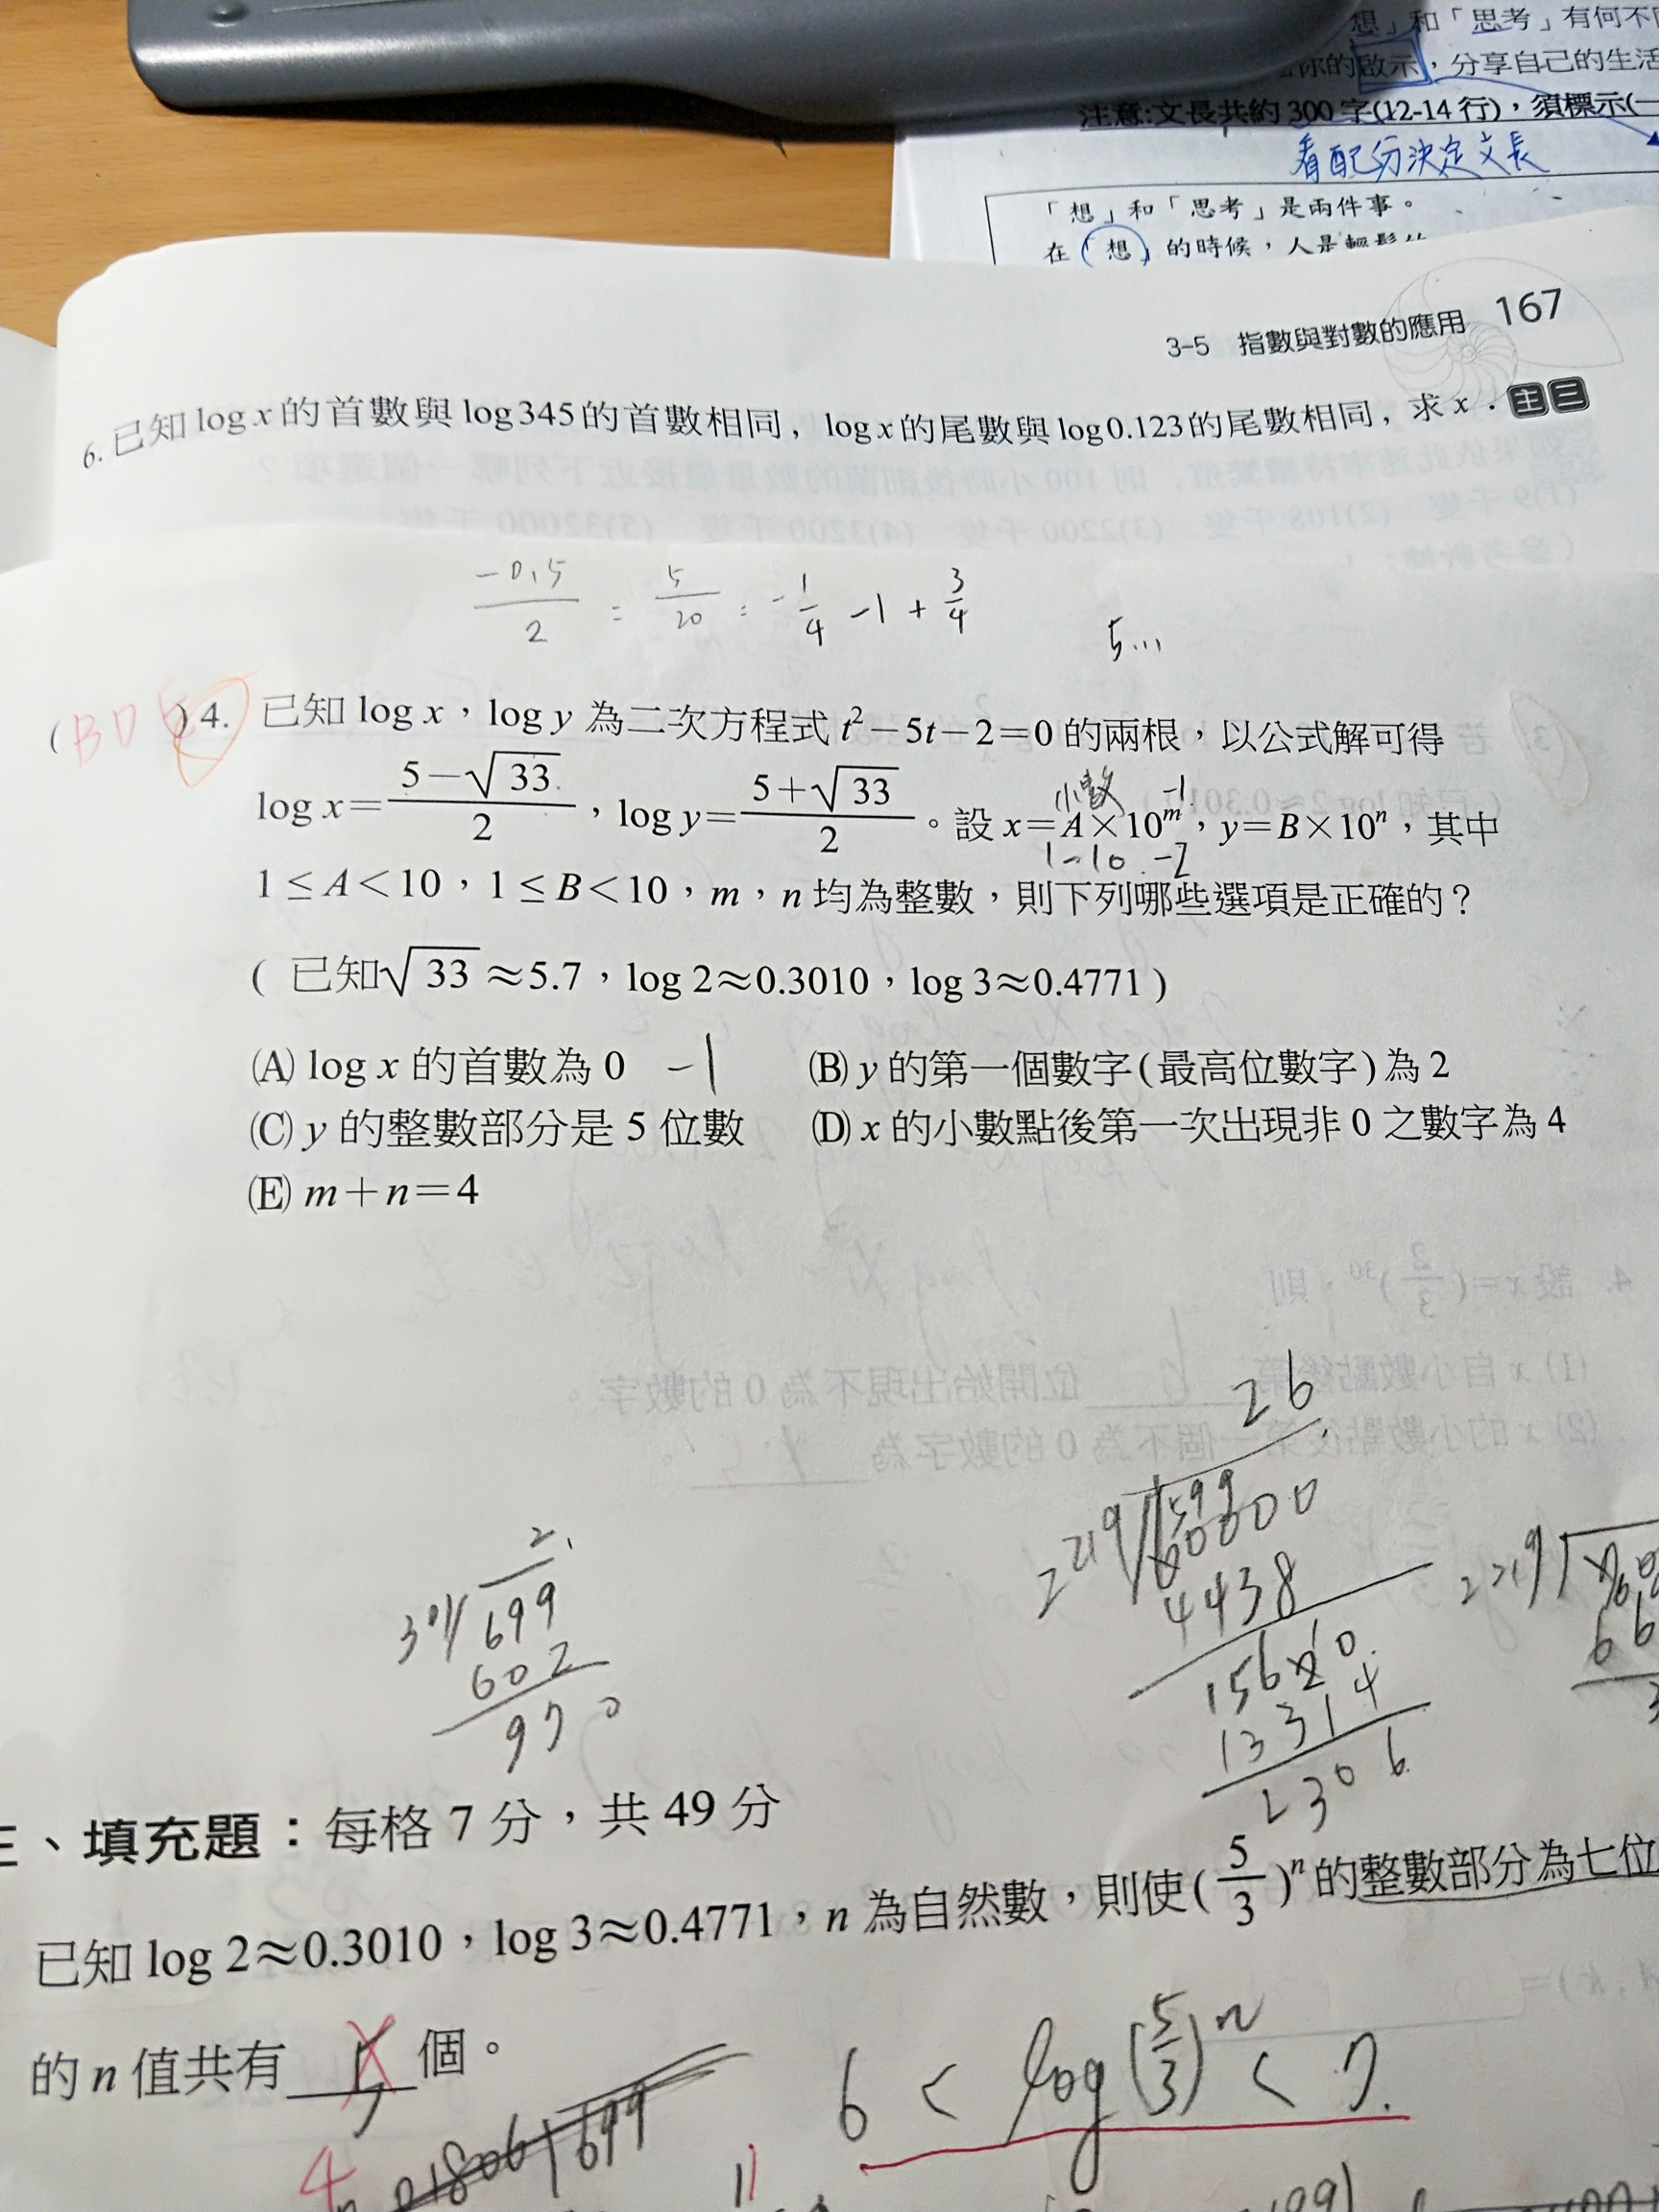 想」和「思考」有何不
你的啟示，分享自己的生活
注意:文長共約 300 字(12-14 行)，須標示(一
看配分決定文長
「想」和「思考」是兩件事。
在「想」的時候，人是輕鬆
3-5 指數與對數的應用 167
6. 已知 log x 的首數與 log 345 的首數相同, log x 的尾數與 log 0.123 的尾數相同, 求 x .
-0.5/2 = 5/20 = -1/4 -1 + 3/4
5...
( B D E ) 4. 已知 log x，log y 為二次方程式 t² − 5t − 2 = 0 的兩根，以公式解可得
log x = (5 − √33)/2，log y = (5 + √33)/2。設 x = A × 10^m，y = B × 10^n，其中
小數 -1
1~10 -2
1 ≤ A < 10，1 ≤ B < 10，m，n 均為整數，則下列哪些選項是正確的？
( 已知 √33 ≈ 5.7，log 2 ≈ 0.3010，log 3 ≈ 0.4771 )
(A) log x 的首數為 0 -1 (B) y 的第一個數字 ( 最高位數字 ) 為 2
(C) y 的整數部分是 5 位數 (D) x 的小數點後第一次出現非 0 之數字為 4
(E) m + n = 4
26
2219
4438
13314
2306
2
301 699
602
970
2219
三、填充題：每格 7 分，共 49 分
已知 log 2 ≈ 0.3010，log 3 ≈ 0.4771，n 為自然數，則使 (5/3)^n 的整數部分為七位
的 n 值共有 個。
6 < log (5/3)^n < 7.
4
11